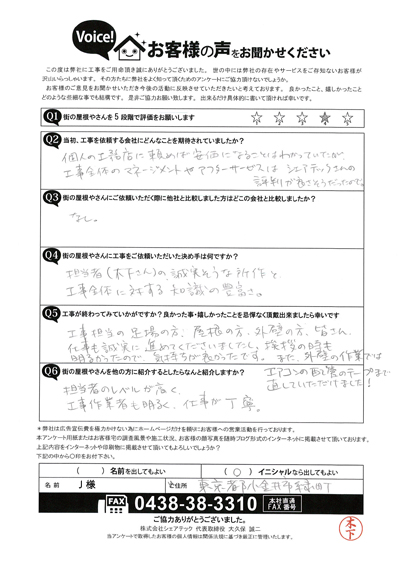 Voice!
お客様の声をお聞かせください
この度は弊社に工事をご用命頂き誠にありがとうございました。世の中には弊社の存在やサービスをご存知ないお客様が
沢山いらっしゃいます。その方たちに弊社をよく知って頂くためのアンケートにご協力頂けないでしょうか。
お客様のご意見をお聞かせいただき今後の活動に反映させていただきたいと考えております。良かったこと、嬉しかったこと
どのような些細な事でも結構です。是非ご協力お願い致します。出来るだけ具体的に書いて頂ければ幸いです。
Q1 街の屋根やさんを5段階で評価をお願いします ☆ ☆ ☆ ★ ☆
Q2 当初、工事を依頼する会社にどんなことを期待されていましたか?
個人の工務店に頼めば安価になることはわかっていたが、
工事全体のマネージメントやアフターサービスはシェアテックさんの
評判が良さそうだったので。
Q3 街の屋根やさんにご依頼いただく際に他社と比較しました方はどこの会社と比較しましたか?
なし。
Q4 街の屋根やさんに工事をご依頼いただいた決め手は何ですか?
担当者(木下さん)の誠実そうな所作と、
工事全体に対する知識の豊富さ。
Q5 工事が終わってみていかがですか?良かった事・嬉しかったことを忌憚なく頂戴出来ましたら幸いです
工事担当の足場の方、屋根の方、外壁の方、皆さん、
仕事も誠実に進めてくださいましたし、挨拶の時も
明るかったので、気持ちが良かったです。また、外壁の作業では
エアコンの配管のテープまで
直していただけました!
Q6 街の屋根やさんを他の方に紹介するとしたらなんと紹介しますか?
担当者のレベルが高く、
工事作業者も明るく、仕事が丁寧。
*弊社は広告宣伝費を極力かけない為にホームページだけを頼りにお客様への営業活動を行っております。
本アンケート用紙またはお客様宅の調査風景や施工状況、お客様の顔写真を随時ブログ形式のインターネットに掲載させて頂いております。
上記内容をインターネットや印刷物に掲載させて頂いてもよろしいでしょうか?
下記の中から〇印をお付け下さい。
( ) 名前を出してもよい ( ○ ) イニシャルなら出してもよい
名前 J様 ご住所 東京都小金井市緑町
FAX 0438-38-3310 本社直通 FAX番号
ご協力ありがとうございました。
株式会社シェアテック 代表取締役 大久保 誠二
当アンケートで取得したお客様の個人情報は関係法規に基づき厳正に管理いたします。
木下